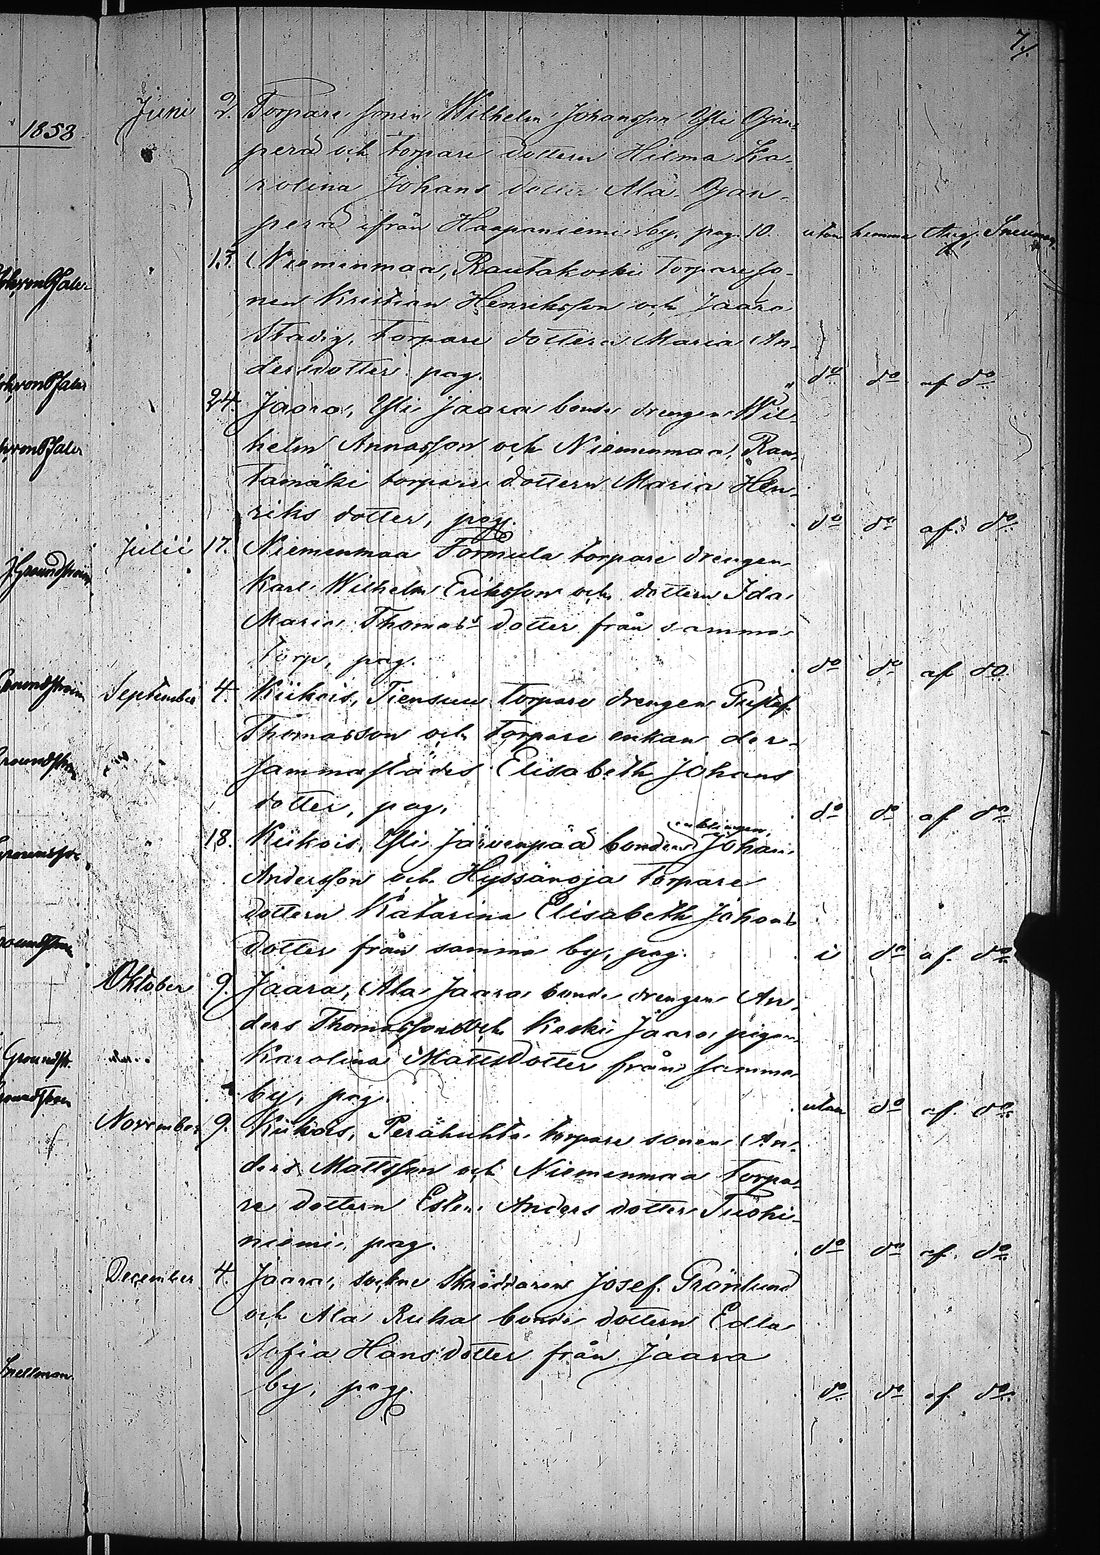 7.
1853
Juni 2. Torpare sonen Wilhelm Johansson Yli Ojan-
perä och torpare dottern Hilma Ka-
rolina Johans dotter Ala Ojan-
perä ifrån Haapaniemi by, pag. 10. utan hemma Aug. Snellman
13. Niemenmaa, Rautakoski torpare so-
nen Kristian Henriksson och Jaara
Stadig, torpare dottern Maria An-
dersdotter. pag. do do af do
24. Jaara, Yli Jaara bonde drengen Wil-
helm Annasson och Niemenmaa, Rau-
tamäki torpare dottern Maria Hen-
riks dotter, pag. do do af do
Julii 17. Niemenmaa Tormula torpare drengen
Karl Wilhelm Eriksson och dottern Ida
Maria Thomas dotter från samma
torp, pag. do do af do
September 4. Kiikois, Tiensuu torpare drengen Gustaf
Thomasson och torpare enkan der-
sammastädes Elisabeth Johans
dotter, pag. do do af do
enklingen
18. Kiikois, Yli Järvenpää bonden Johan
Andersson och Hyssänoja torpare
dottern Katarina Elisabeth Johans
dotter från samma by, pag. i do af do
Oktober 9. Jaara, Ala Jaara bonde drengen An-
ders Thomasson och Keski Jaara pigan
Karolina Mattsdotter från samma
by, pag. utan do af do
November 9. Kiikois, Perähuhta torpare sonen An-
ders Mattsson och Niemenmaa torpa-
re dottern Ester Anders dotter Tuohi-
niemi, pag. do do af do
December 4. Jaara, sockne Skräddaren Josef Grönlund
och Ala Ruha bonde dottern Edla
Sofia Hans dotter från Jaara
by, pag. do do af do
Snellman